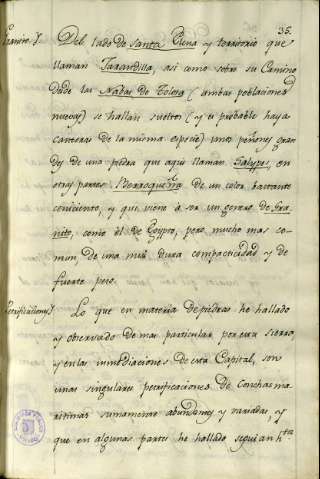 35.
Granito. Del lado de Santa Elena y territorio que
llaman Tarandilla, asi como sobre su Camino
desde las Nabas de Tolosa (ambas poblaciones
nuevas) se hallan sueltos (y es probable haya
canteras de la misma especie) unos peñones gran
des de una piedra que aqui llaman Salypo, en
otras partes Berroqueña de un color bastante
ceniciento, y que viene à ser un genero de Gra
nito, como el de Egypto, pero mucho mas co-
mun, de una mui dura compacticidad y de
fuerte peso.
Petrificaciones. Lo que en materia de piedras he hallado
y observado de mas particular por esta sierra
y en las inmediaciones de esta Capital, son
unas singulares petrificaciones De Conchas ma
ritimas sumamente abundantes y variadas, y
que en algunas partes he hallado seguian h.ta